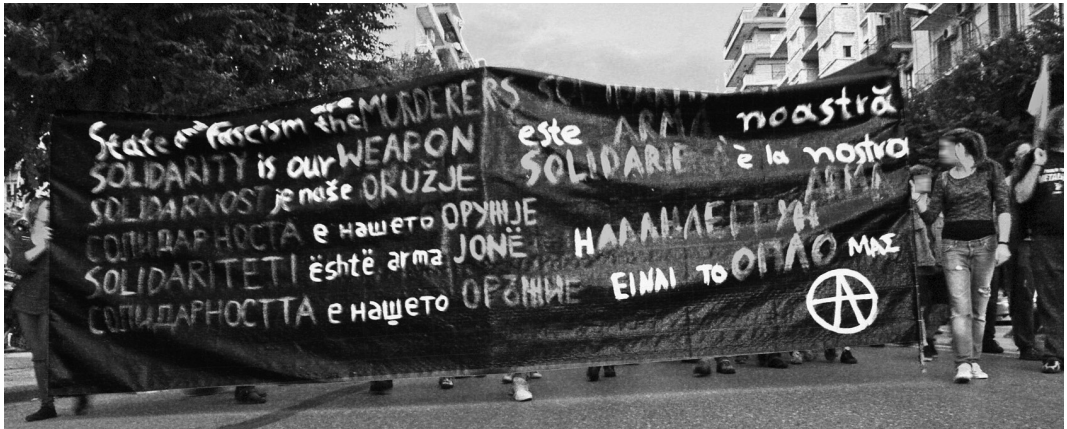 State and Fascism are the MURDERERS
SOLIDARITY is our WEAPON
SOLIDARNOST je naše ORUŽJE
СОЛИДАРНОСТА е нашето ОРУЖЈЕ
SOLIDARITETI është arma JONË
СОЛИДАРНОСТТА е нашето ОРЪЖИЕ
este ARMA noastră
è la nostra
ARMA
Η ΑΛΛΗΛΕΓΓΥΗ
ΕΙΝΑΙ ΤΟ ΟΠΛΟ ΜΑΣ